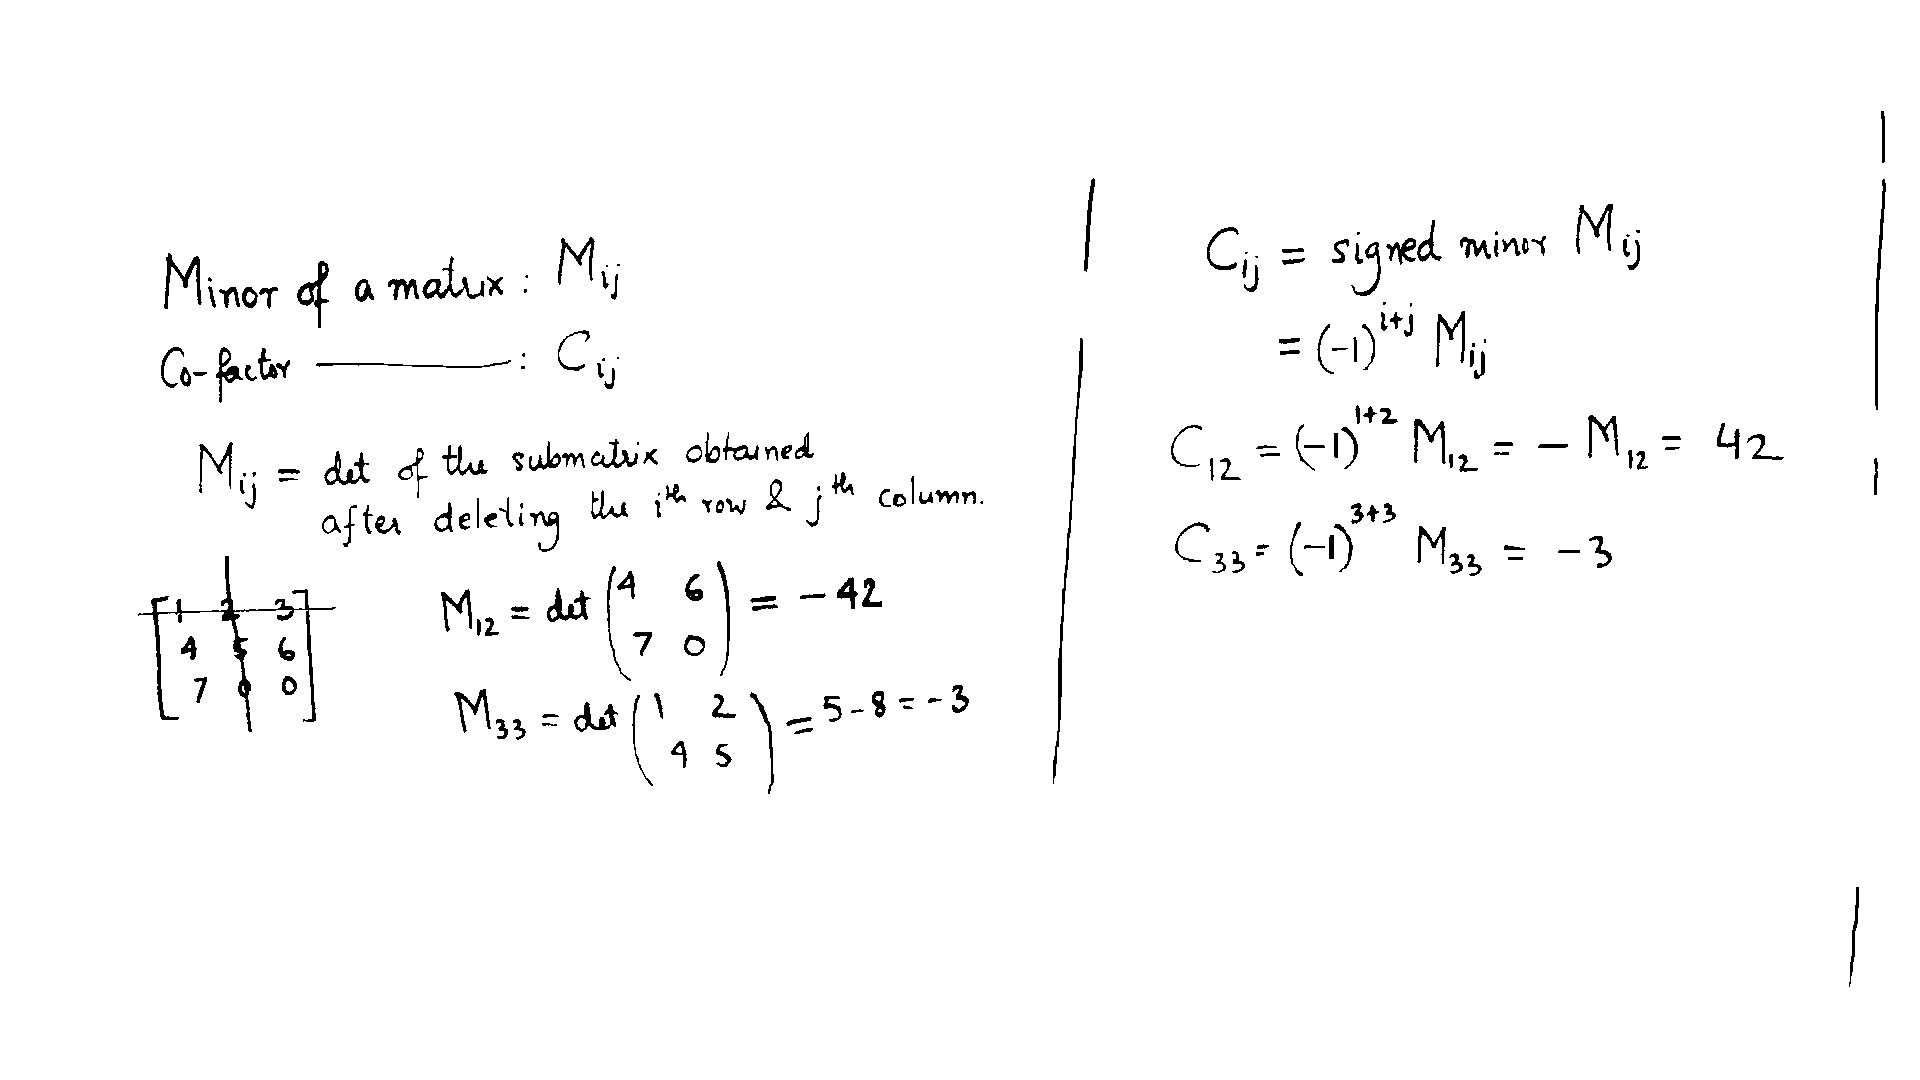 Minor of a matrix : Mij
Co-factor ——— : Cij
Mij = det of the submatrix obtained
after deleting the ith row & jth column.
[1 2 3
4 5 6
7 0 0]
M12 = det (4 6
7 0) = - 42
M33 = det (1 2
4 5) = 5 - 8 = - 3
Cij = signed minor Mij
= (-1)^i+j Mij
C12 = (-1)^1+2 M12 = - M12 = 42
C33 = (-1)^3+3 M33 = - 3